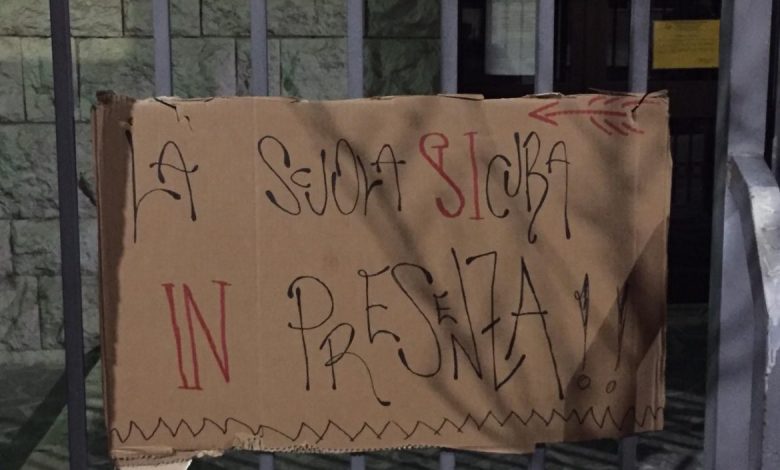 LA SCUOLA SICURA
IN PRESENZA!!